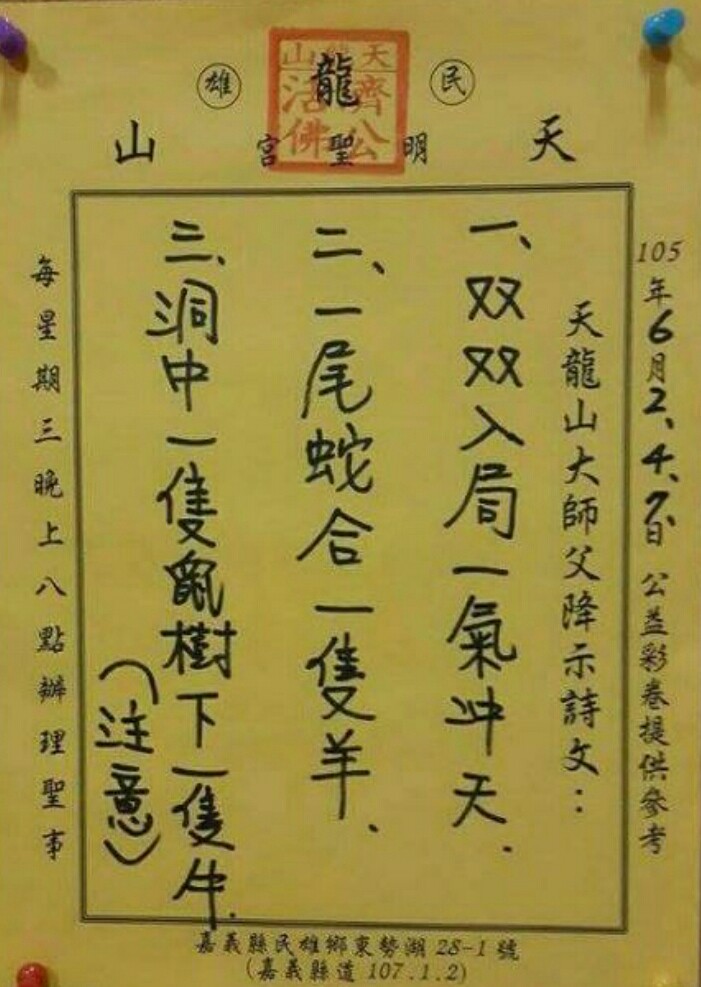 民
雄
天龍山
明聖宮
天龍山
濟公
活佛
105年6月2、4、7日 公益彩卷提供參考
天龍山大師父降示詩文：
一、双双入局一氣冲天.
二、一尾蛇合一隻羊、
三、洞中一隻鼠樹下一隻牛.
（注意）
每星期三晚上八點辦理聖事
嘉義縣民雄鄉東勢湖28-1號
(嘉義縣道107.1.2)